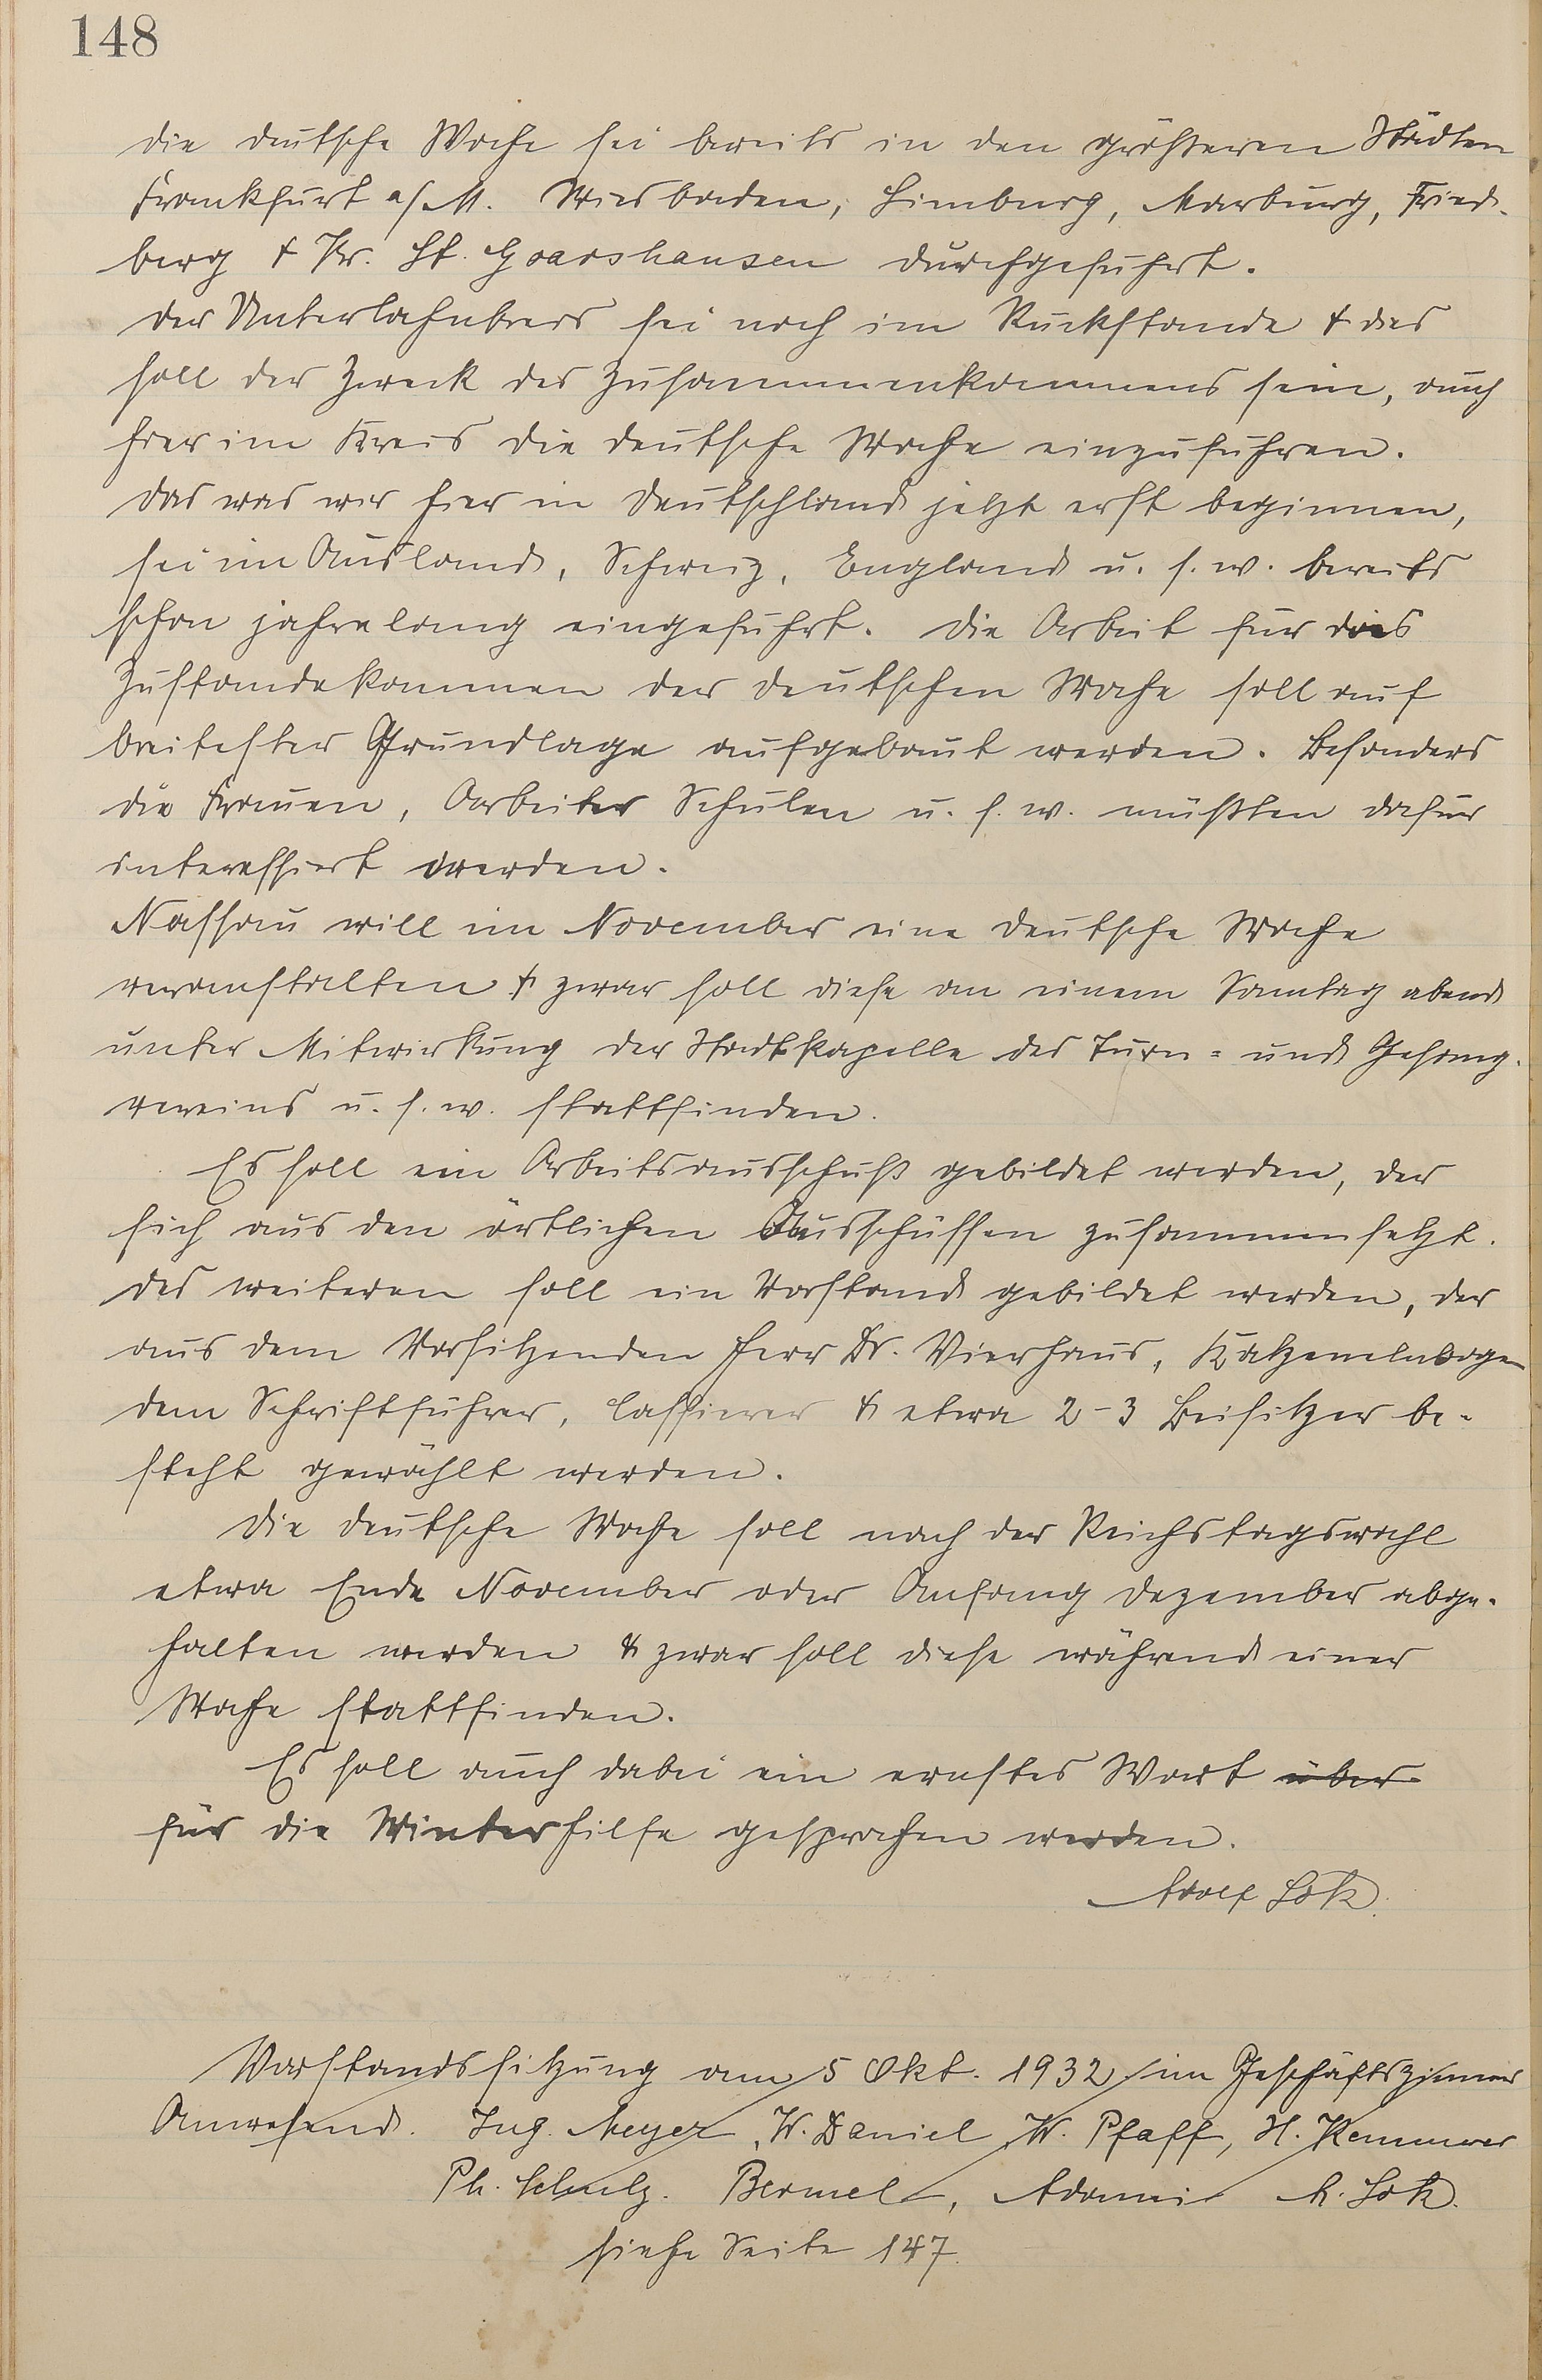 148
die deutsche Woche sei bereits in den größeren Städten
Frankfurt a/M. Wiesbaden, Limburg, Marburg, Fried-
berg & Kr. St. Goarshausen durchgeführt.
Der Unterlahnkreis sei noch im Rückstande & dies
soll der Zweck des Zusammenkommens sein, auch
hier im Kreis die deutsche Woche einzuführen.
Das was wir hier in Deutschland jetzt erst beginnen,
sei im Ausland, Schweiz, England u. s. w. bereits
schon jahrelang eingeführt. Die Arbeit für das
Zustandekommen der deutschen Woche soll auf
breitester Grundlage aufgebaut werden. Besonders
die Frauen, Arbeiter Schulen u. s. w. müßten dafür
interessiert werden.
Nassau will im November eine deutsche Woche
veranstalten & zwar soll diese an einem Sonntag abend
unter Mitwirkung der Stadtkapelle des Turn- und Gesang-
vereins u. s. w. stattfinden.
Es soll ein Arbeitsausschuß gebildet werden, der
sich aus den örtlichen Ausschüssen zusammensetzt.
Des weiteren soll ein Vorstand gebildet werden, der
aus dem Vorsitzenden Herr Dr. Vierhaus, Katzenelnbogen
dem Schriftführer, Cassierer & etwa 2-3 Beisitzer be-
steht gewählt werden.
Die deutsche Woche soll nach der Reichstagswahl
etwa Ende November oder Anfang Dezember abge-
halten werden & zwar soll diese während einer
Woche stattfinden.
Es soll auch dabei ein ernstes Wort über
für die Winterhilfe gesprochen werden.
Adolf Lotz.
Vorstandssitzung am 5 Okt. 1932 im Geschäftszimmer
Anwesend. Ing. Meyer, W. Daniel, W. Pfaff, H. Kemmerer
Ph. Schulz. Bermel, Adami A. Lotz.
siehe Seite 147.